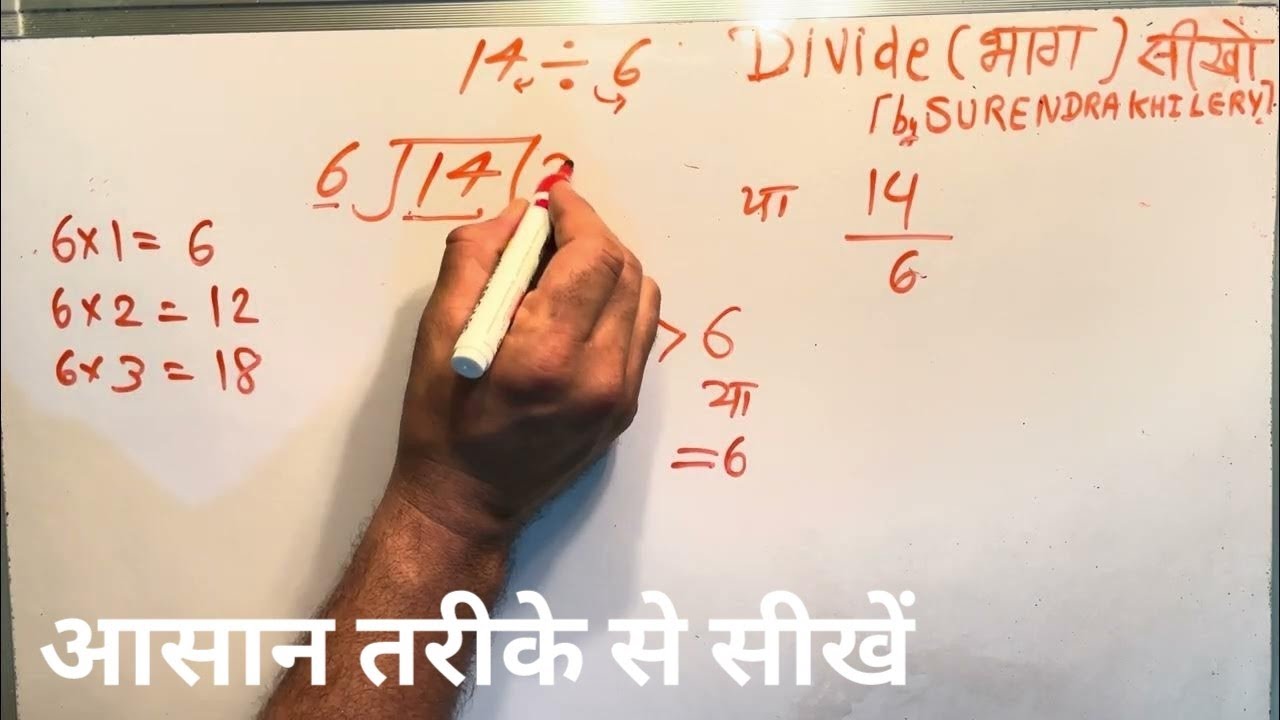 14 ÷ 6
Divide (भाग) सीखो
[by SURENDRA KHILERY]
6 ) 14 (
या 14
6
6×1= 6
6×2 = 12
6×3 = 18
> 6
या
= 6
आसान तरीके से सीखें